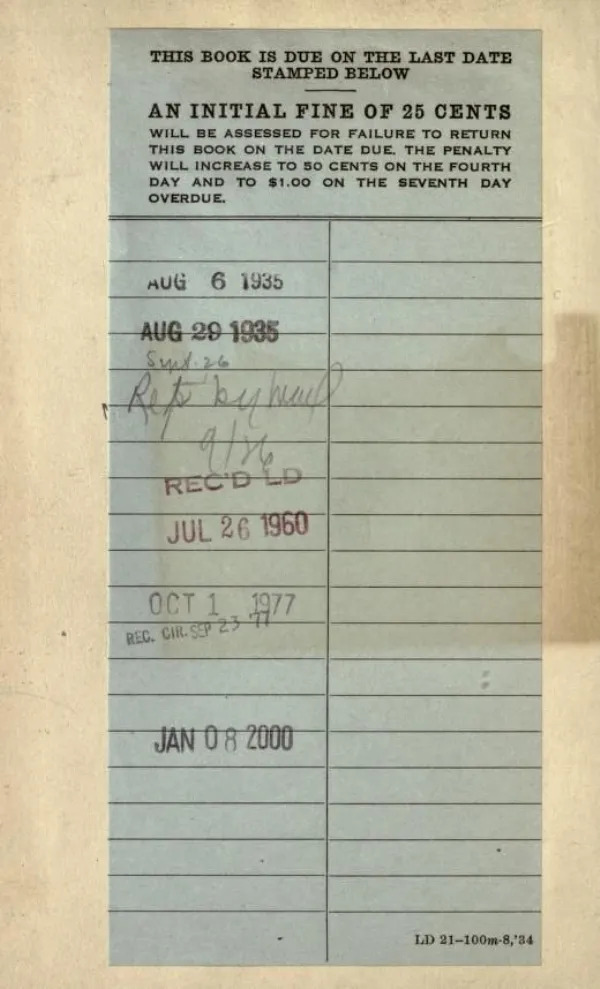 THIS BOOK IS DUE ON THE LAST DATE
STAMPED BELOW
AN INITIAL FINE OF 25 CENTS
WILL BE ASSESSED FOR FAILURE TO RETURN
THIS BOOK ON THE DATE DUE. THE PENALTY
WILL INCREASE TO 50 CENTS ON THE FOURTH
DAY AND TO $1.00 ON THE SEVENTH DAY
OVERDUE.
AUG 6 1935
AUG 29 1935
Sept. 26
by mail
9/26
REC'D LD
JUL 26 1960
OCT 1 1977
REC. CIR. SEP 23 '77
JAN 08 2000
LD 21-100m-8,'34